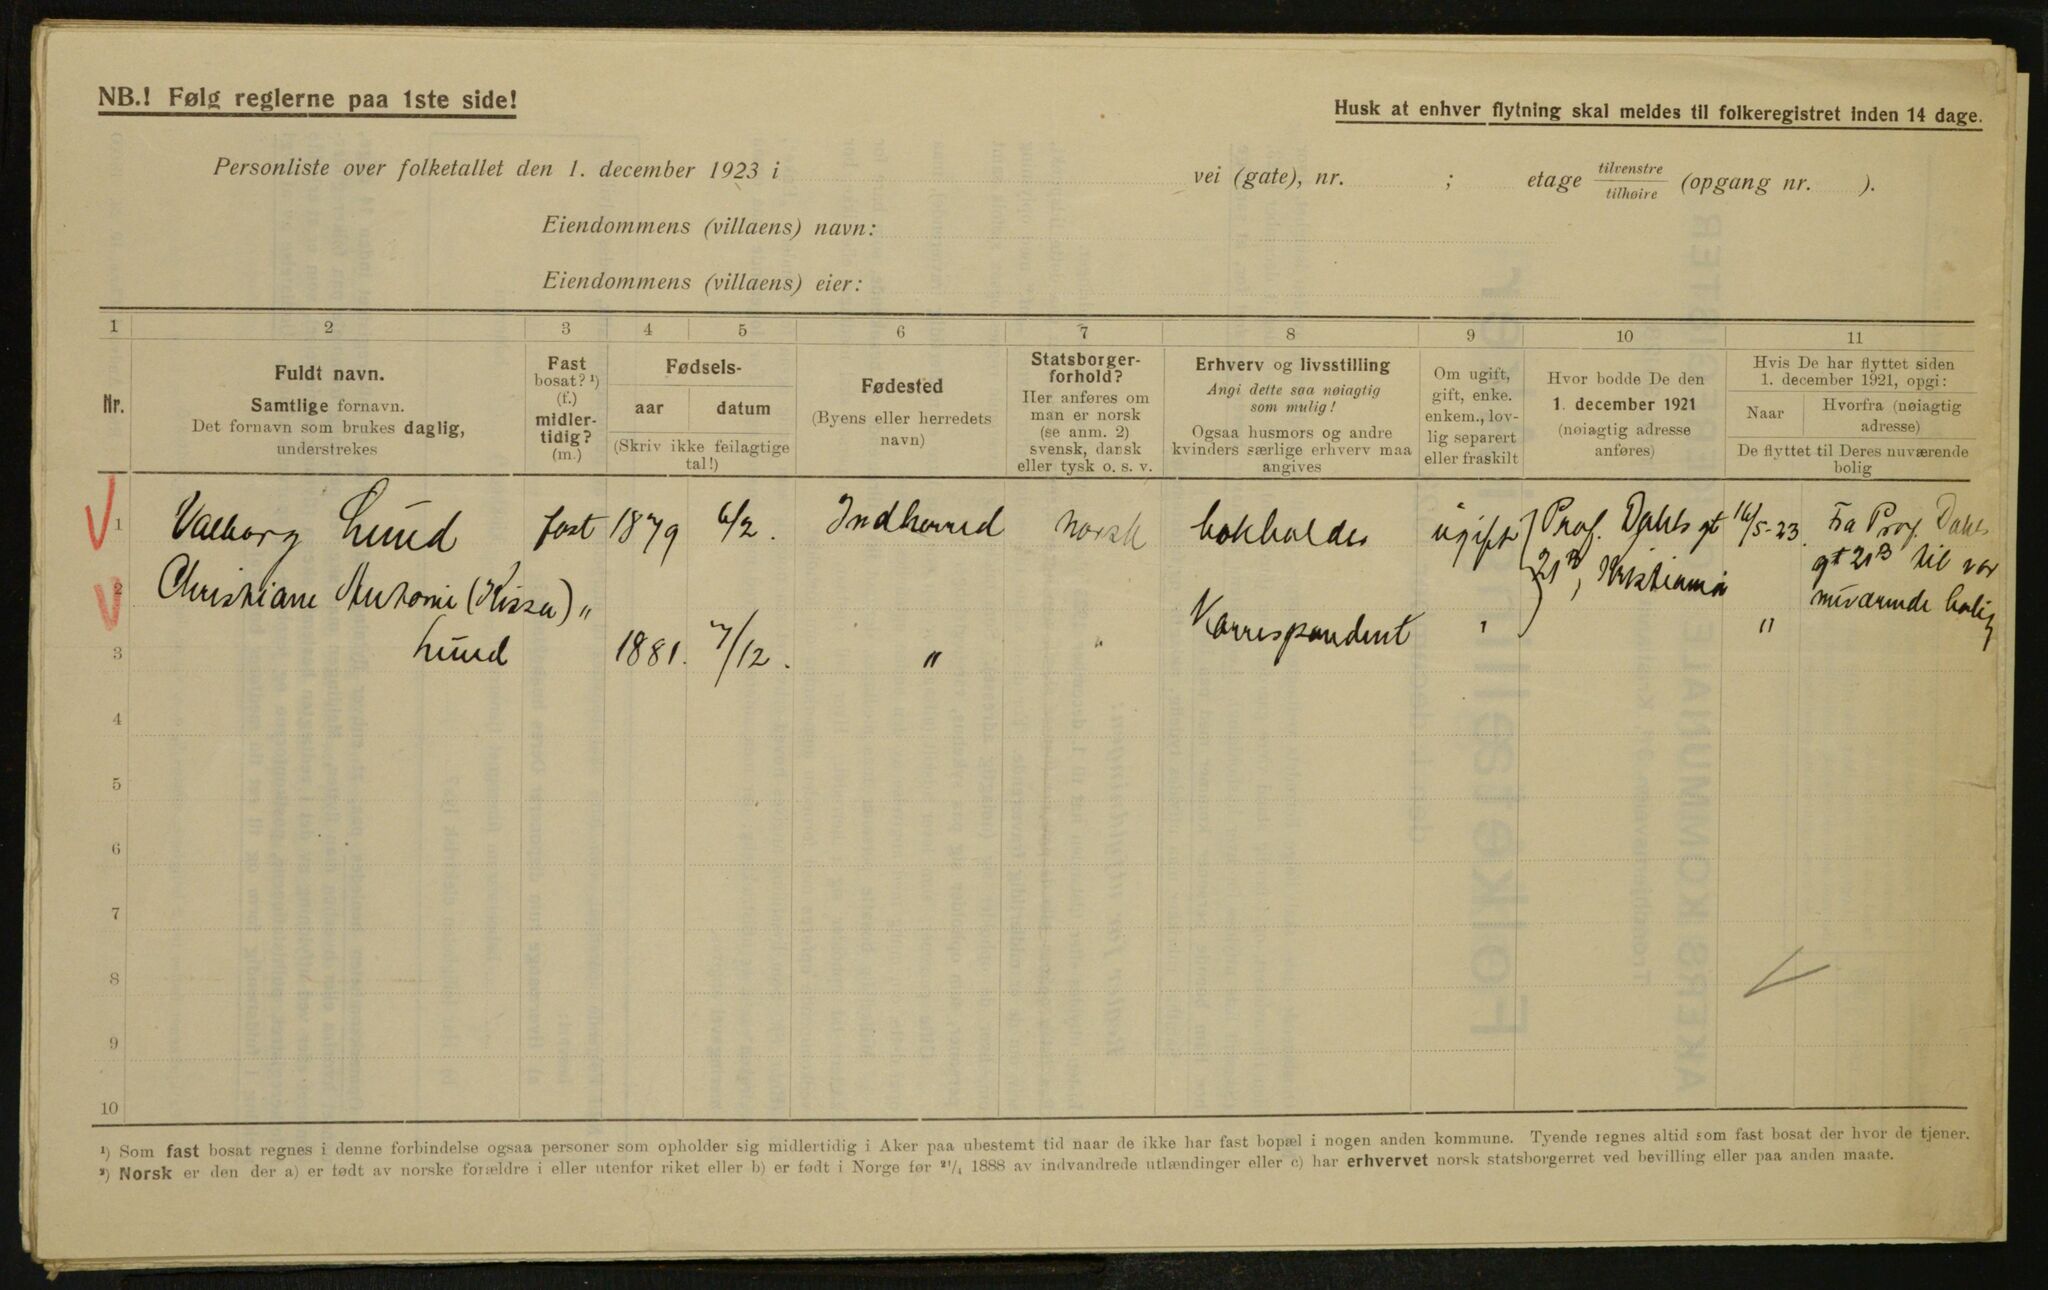 NB.! Følg reglerne paa 1ste side!
Husk at enhver flytning skal meldes til folkeregistret inden 14 dage.
Personliste over folketallet den 1. december 1923 i vei (gate), nr. ; etage tilvenstre/tilhøire (opgang nr. ).
Eiendommens (villaens) navn:
Eiendommens (villaens) eier:
1 2 3 4 5 6 7 8 9 10 11
Nr.
Fuldt navn.
Samtlige fornavn.
Det fornavn som brukes daglig,
understrekes
Fast
bosat? ¹)
(f.)
midler-
tidig?
(m.)
Fødsels-
aar datum
(Skriv ikke feilagtige
tal!)
Fødested
(Byens eller herredets
navn)
Statsborger-
forhold?
Her anføres om
man er norsk
(se anm. 2)
svensk, dansk
eller tysk o. s. v.
Erhverv og livsstilling
Angi dette saa nøiagtig
som mulig!
Ogsaa husmors og andre
kvinders særlige erhverv maa
angives
Om ugift,
gift, enke.
enkem., lov-
lig separert
eller fraskilt
Hvor bodde De den
1. december 1921
(nøiagtig adresse
anføres)
Hvis De har flyttet siden
1. december 1921, opgi:
Naar
Hvorfra (nøiagtig
adresse)
De flyttet til Deres nuværende
bolig
1 Valborg Lund fast 1879 6/2. Indherred norsk bokholder ugift Prof. Dahls gt 16/5-23. Fra Prof. Dahls
21B, Kristiania gt 21B til vor
2 Christiane Antonie (Kissa) " nuværende bolig
3 Lund 1881. 7/12. " " Korrespondent " "
4
5
6
7
8
9
10
¹) Som fast bosat regnes i denne forbindelse ogsaa personer som opholder sig midlertidig i Aker paa ubestemt tid naar de ikke har fast bopæl i nogen anden kommune. Tyende regnes altid som fast bosat der hvor de tjener.
²) Norsk er den der a) er født av norske forældre i eller utenfor riket eller b) er født i Norge før ²¹/₄ 1888 av indvandrede utlændinger eller c) har erhvervet norsk statsborgerret ved bevilling eller paa anden maate.